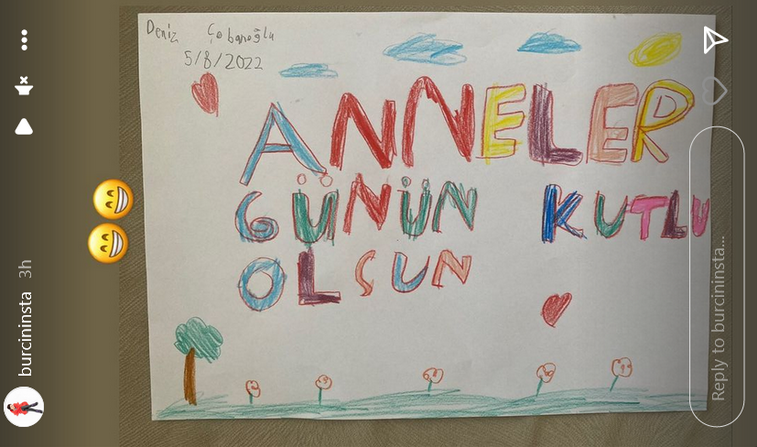 Deniz Çobanoğlu
5/8/2022
ANNELER
GÜNÜN KUTLU
OLSUN
burcininsta 3h
Reply to burcininsta...